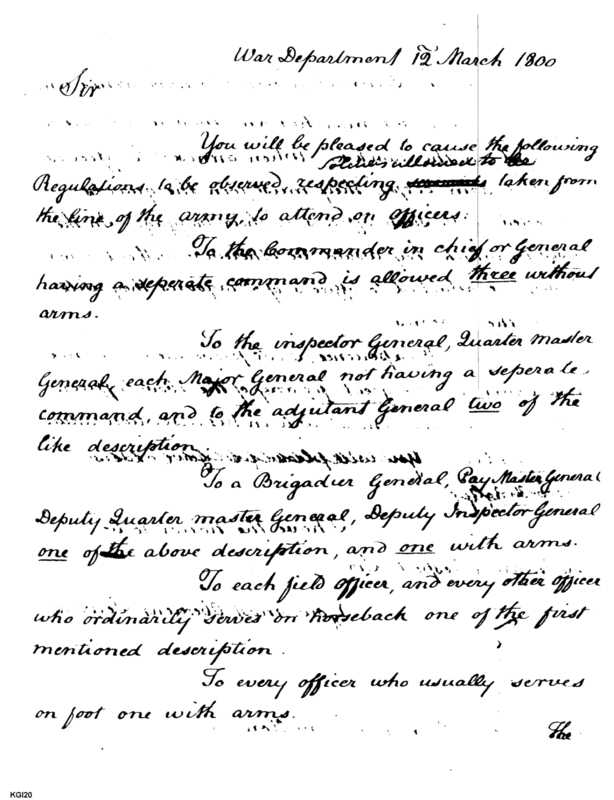 War Department 12th March 1800
Sir
You will be pleased to cause the following
soldiers allowed to be
Regulations to be observed, respecting taken from
the line of the army, to attend on officers.
To the Commander in chief or General
having a seperate command is allowed three without
arms.
To the inspector General, Quarter master
General, each Major General not having a seperate
command, and to the adjutant General two of the
like description.
To a Brigadier General, Pay Master General
Deputy Quarter master General, Deputy Inspector General
one of the above description, and one with arms.
To each field officer, and every other officer
who ordinarily serves on horseback one of the first
mentioned description.
To every officer who usually serves
on foot one with arms.
The
KGI20